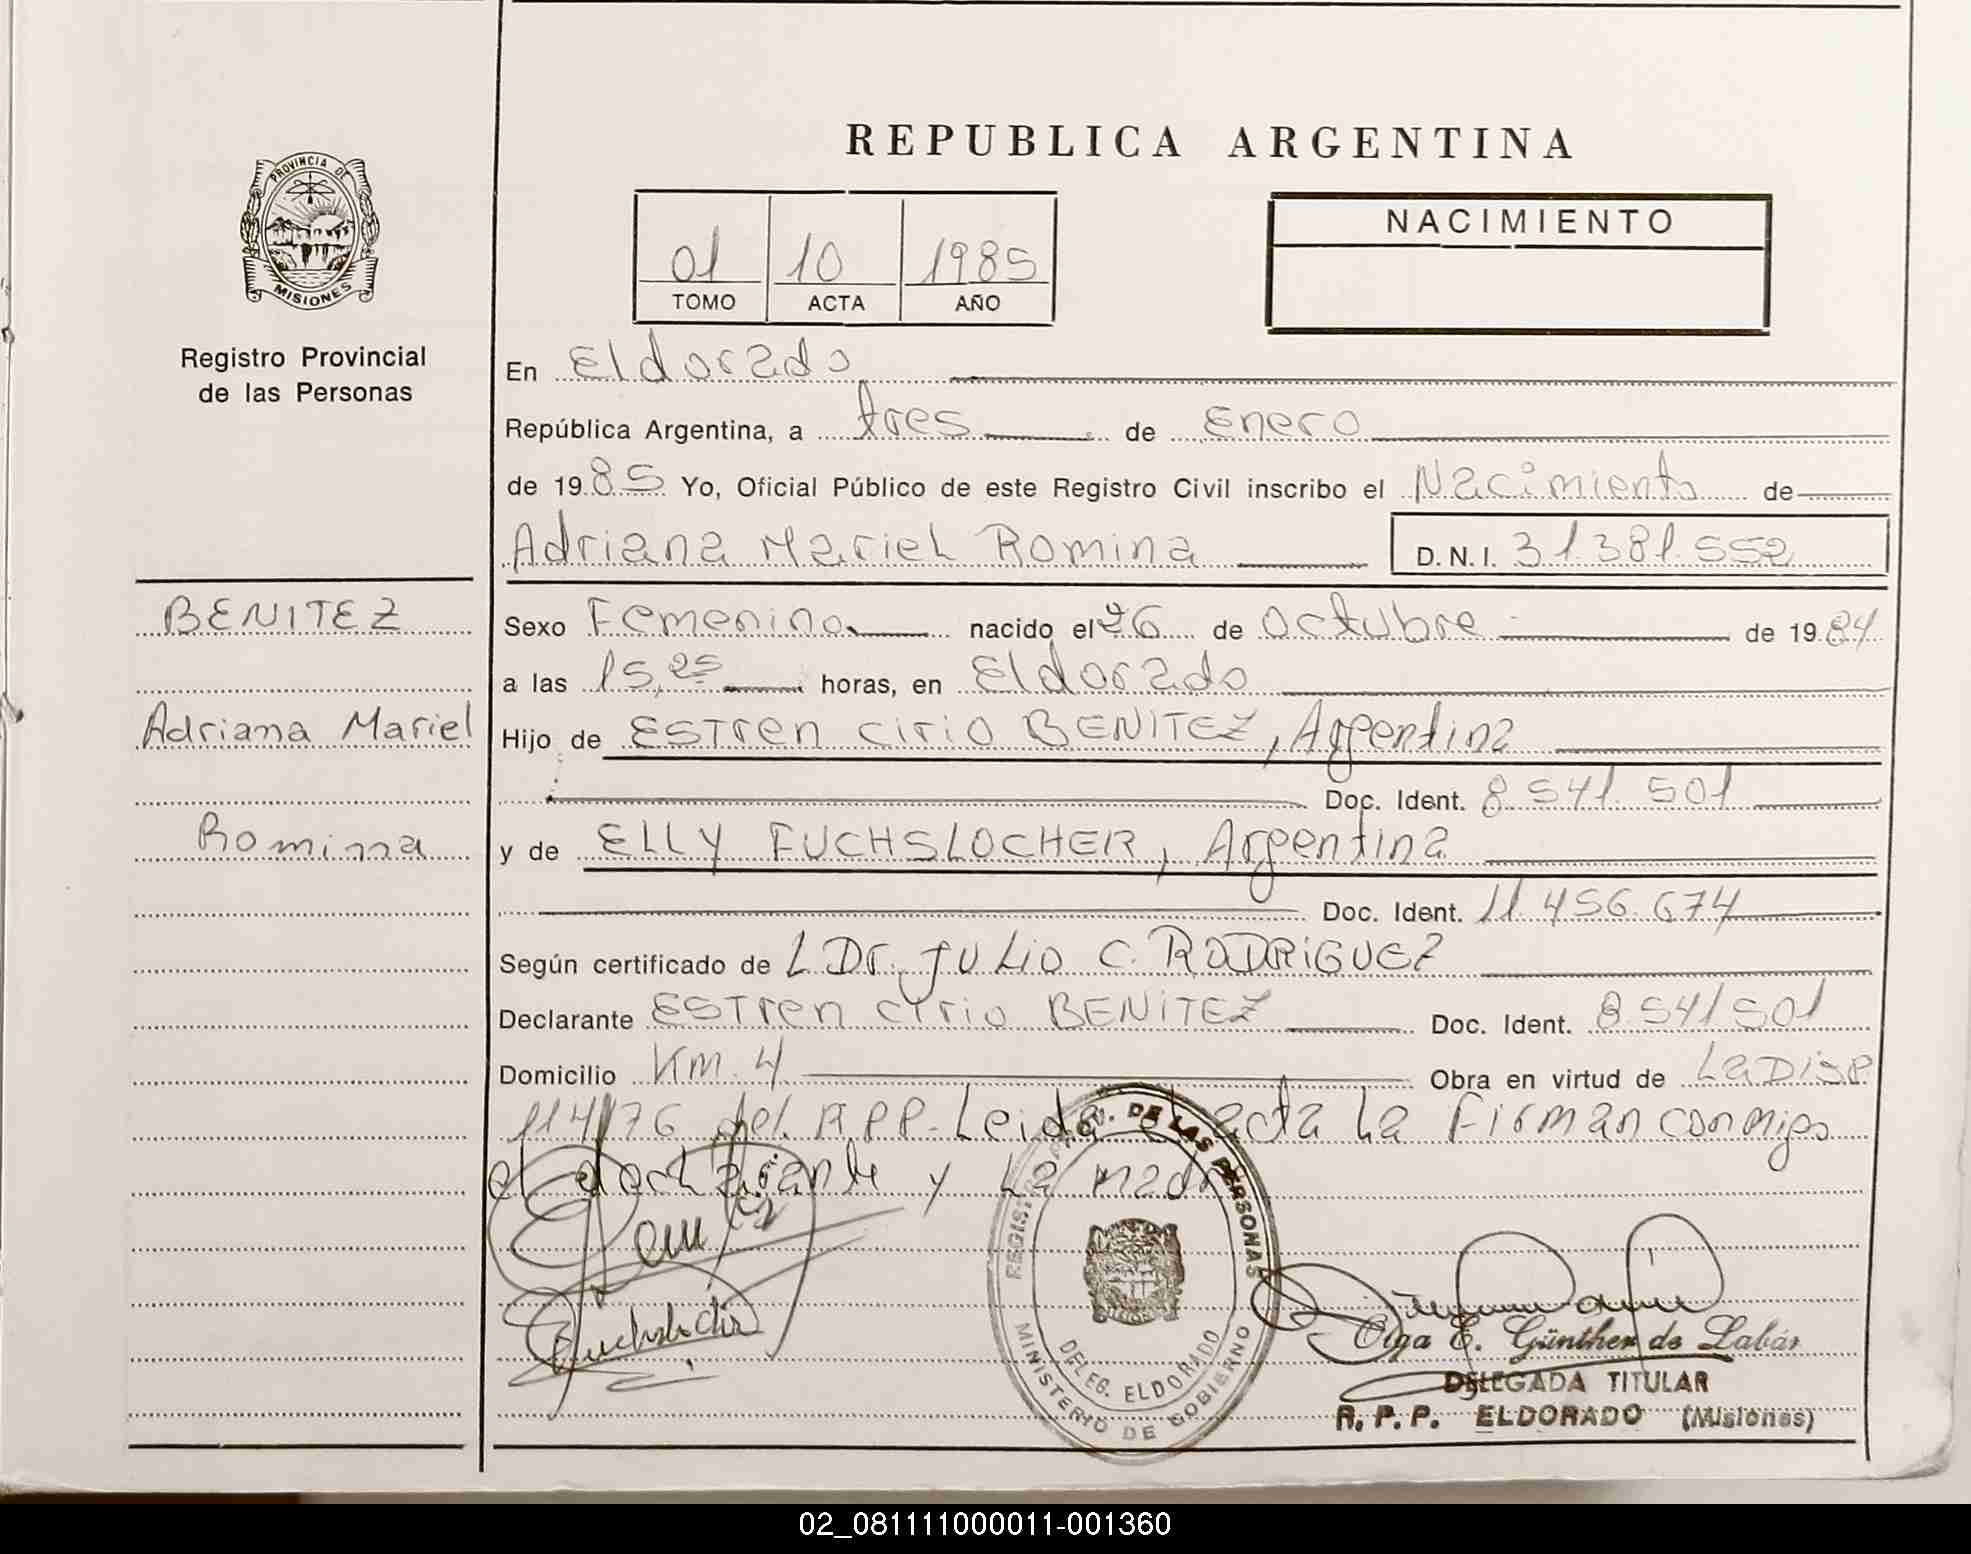 PROVINCIA DE
MISIONES
Registro Provincial
de las Personas
BENITEZ
Adriana Mariel
Romina
REPUBLICA ARGENTINA
01 10 1985
TOMO ACTA AÑO
NACIMIENTO
En Eldorado
República Argentina, a tres de Enero
de 1985 Yo, Oficial Público de este Registro Civil inscribo el Nacimiento de
Adriana Mariel Romina D.N.I. 31.381.552
Sexo Femenino nacido el 26 de Octubre de 1984
a las 15,25 horas, en Eldorado
Hijo de ESTren cirio BENITEZ, Argentina
Doc. Ident. 8.541.501
y de ELLY FUCHSLOCHER, Argentina
Doc. Ident. 11.456.674
Según certificado de L Dr. JULio C. RODRiGUEZ
Declarante ESTren cirio BENITEZ Doc. Ident. 8.541.501
Domicilio Km. 4 Obra en virtud de La Disp
114/76 del RPP. Leida acta La Firman conmigo
el declarante y La madre
REGISTRO PROV. DE LAS PERSONAS
MINISTERIO DE GOBIERNO
DELEG. ELDORADO
Olga E. Günther de Labár
DELEGADA TITULAR
R. P. P. ELDORADO (Misiones)
02_081111000011-001360